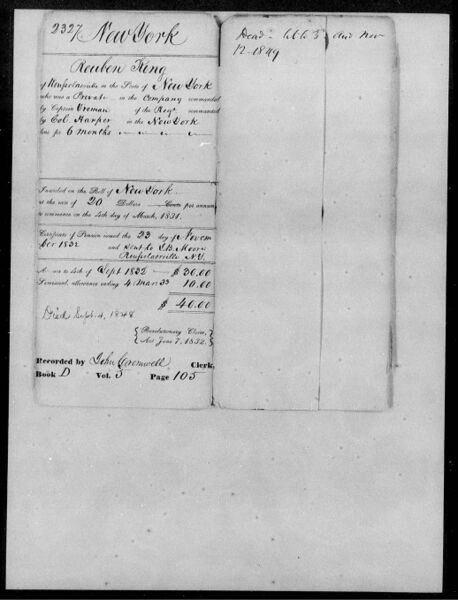 2327 New York
Reuben King
of Rensselaerville in the State of New York
who was a Private in the Company commanded
by Captain Vroman of the Regt commanded
by Col. Harper in the New York
line for 6 months
Inscribed on the Roll of New York
at the rate of 20 Dollars Cents per annum
to commence on the 4th day of March, 1831.
Certificate of Pension issued the 23 day of Novem
ber 1832 and sent to
Rensselaerville N.Y.
Arrears to 4th of Sept 1832 $ 30.00
Semi-anl. allowance ending 4 Mar 33 10.00
$ 40.00
Died Sept. 4, 1848
Revolutionary Claim,
Act June 7, 1832.
Recorded by John Cromwell Clerk,
Book D Vol. 5 Page 105
Dead - 3d Aud Nov
12-1849